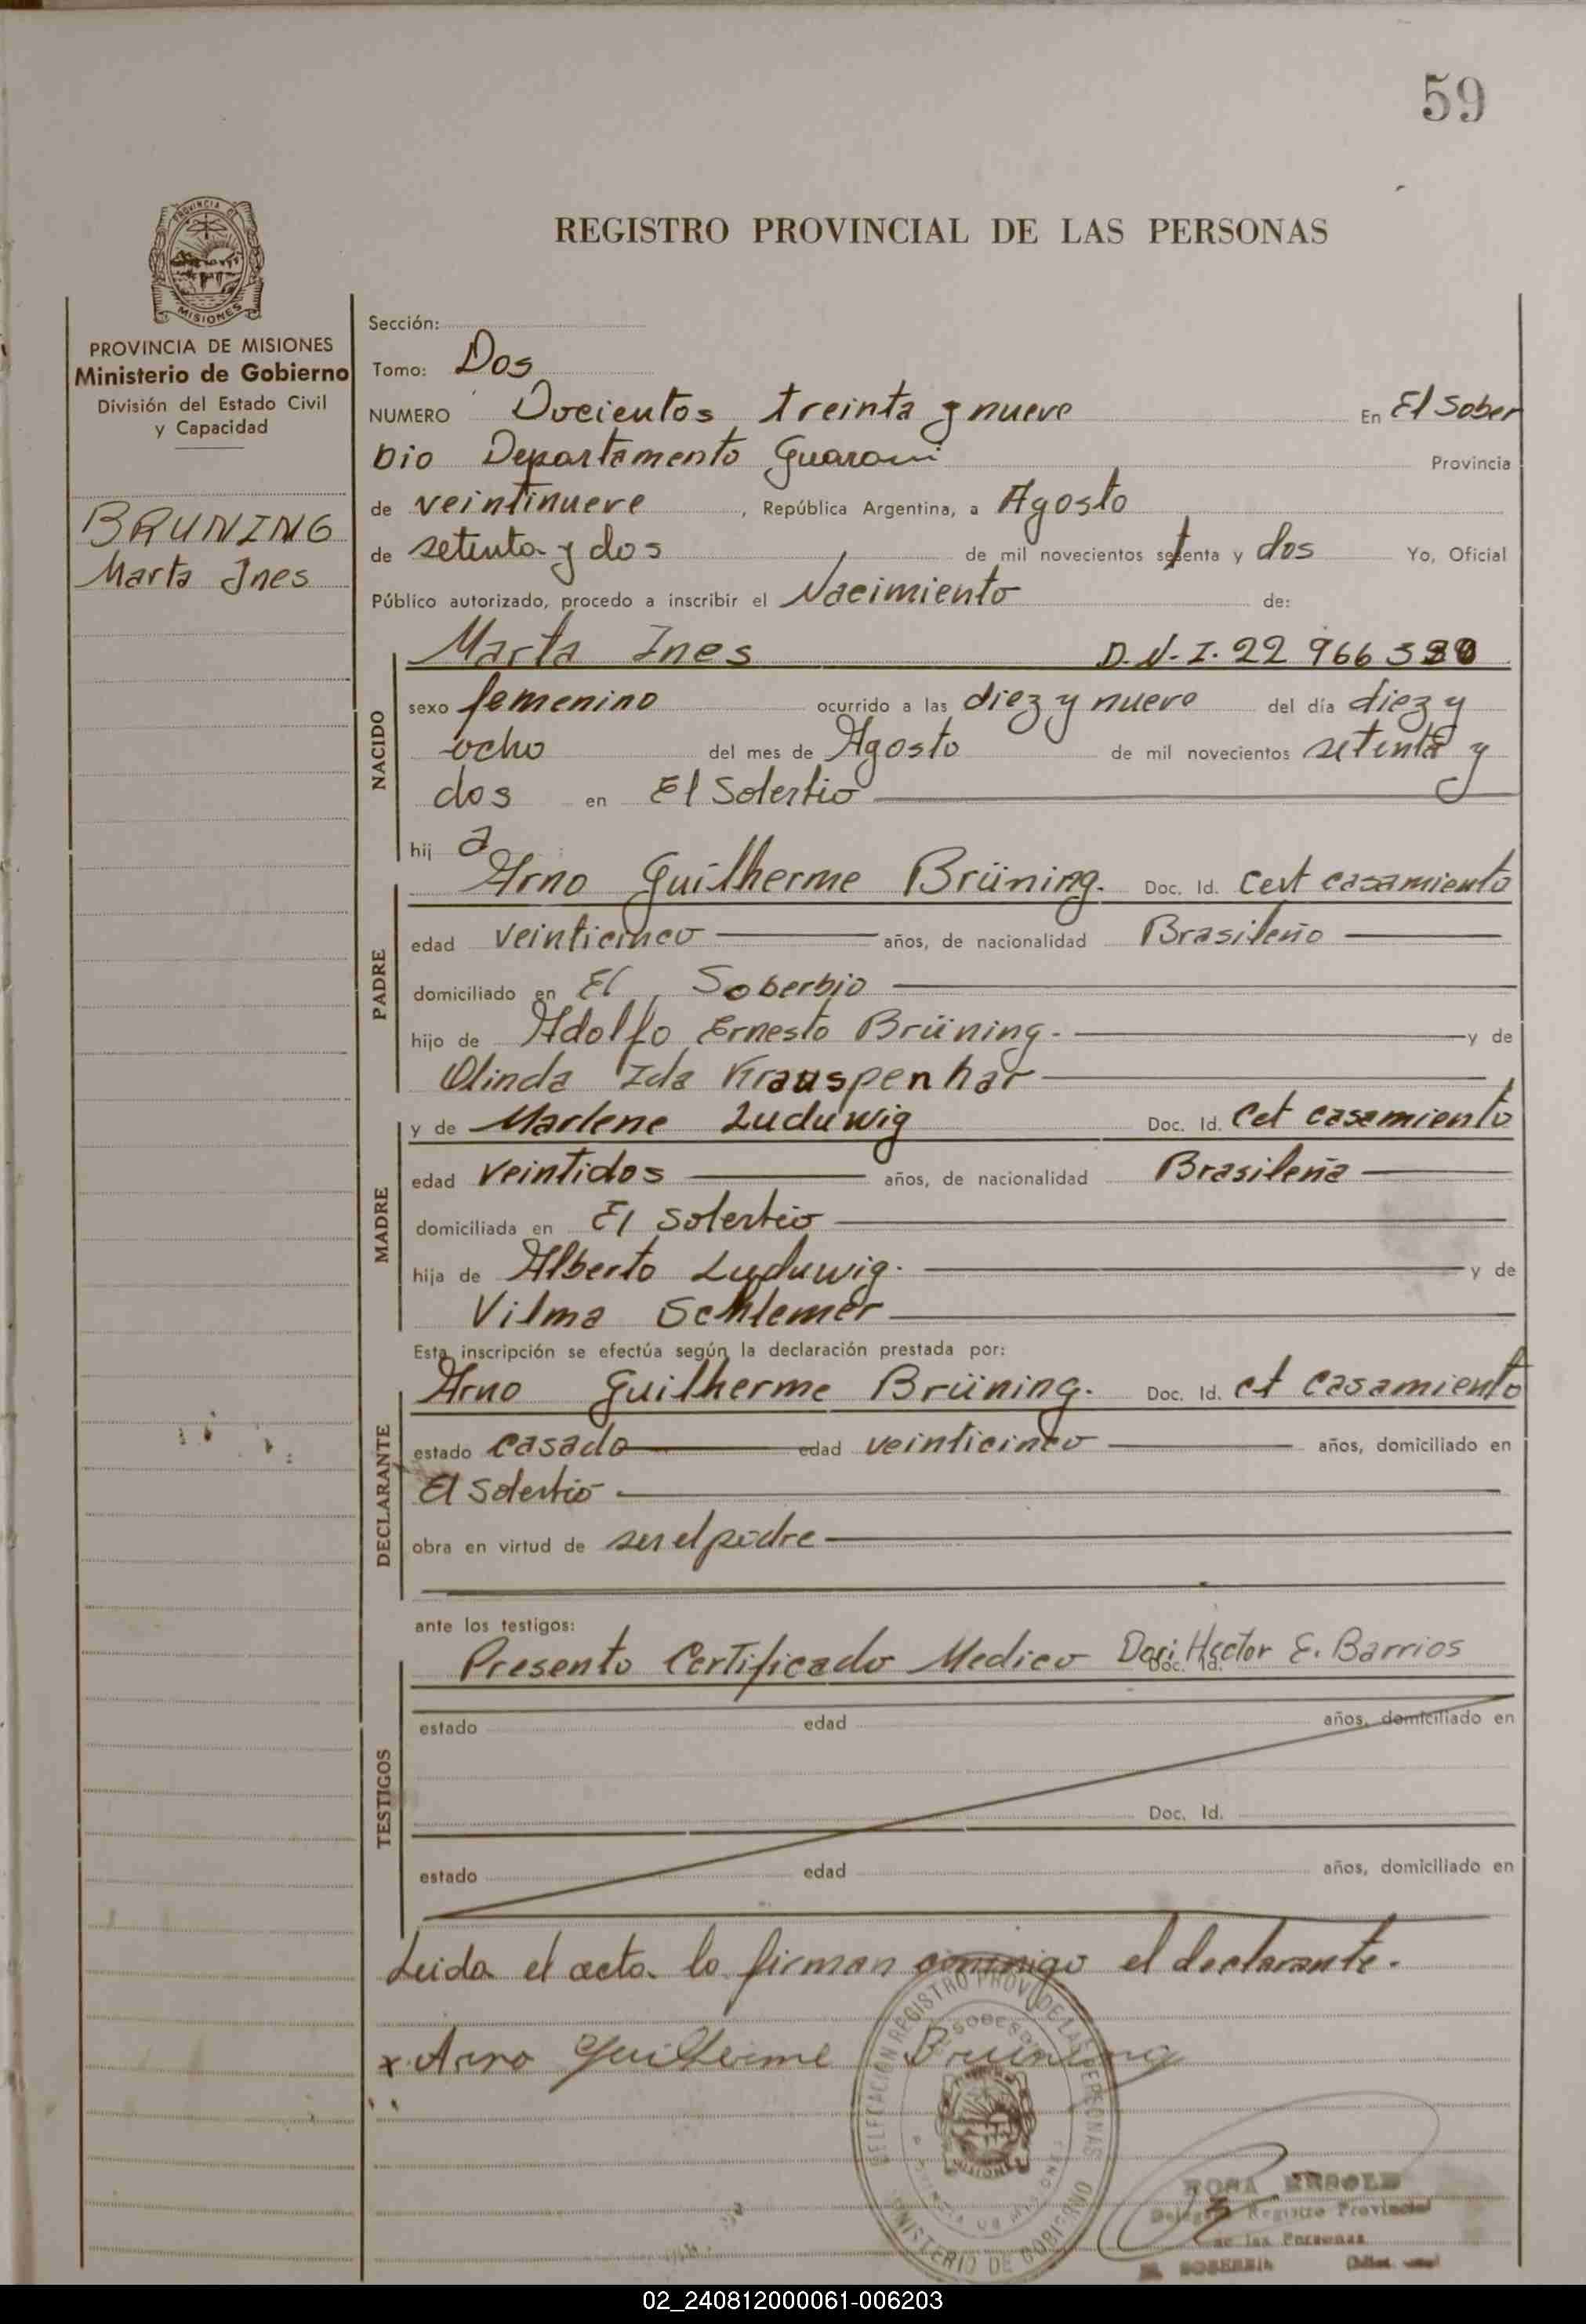 59
REGISTRO PROVINCIAL DE LAS PERSONAS
PROVINCIA DE
MISIONES
PROVINCIA DE MISIONES
Ministerio de Gobierno
División del Estado Civil
y Capacidad
BRUNING
Marta Ines
Sección:
Tomo: Dos
NUMERO Docientos treinta y nueve En El Sober
bio Departamento Guarani Provincia
de veintinueve, República Argentina, a Agosto
de setenta y dos de mil novecientos setenta y dos Yo, Oficial
Público autorizado, procedo a inscribir el Nacimiento de:
NACIDO
Marta Ines D.N.I. 22 966
sexo femenino ocurrido a las diez y nueve del día diez y
ocho del mes de Agosto de mil novecientos setenta y
dos en El Soberbio
hij a
PADRE
Arno Guilherme Brüning. Doc. Id. Cert casamiento
edad veinticinco años, de nacionalidad Brasileño
domiciliado en El Soberbio
hijo de Adolfo Ernesto Brüning. y de
Olinda Ida Krauspenhar
MADRE
y de Marlene Luduwig Doc. Id. Cet casamiento
edad veintidos años, de nacionalidad Brasileña
domiciliada en El Soberbio
hija de Alberto Luduwig. y de
Vilma Schlemer
Esta inscripción se efectúa según la declaración prestada por:
DECLARANTE
Arno Guilherme Brüning. Doc. Id. ct casamiento
estado casado edad veinticinco años, domiciliado en
El Soberbio
obra en virtud de ser el padre
ante los testigos:
TESTIGOS
Presento Certificado Medico Doc. Id. Hector E. Barrios
estado edad años, domiciliado en
Doc. Id.
estado edad años, domiciliado en
Leida el acta lo firman conmigo el declarante.
x Arno Guilherme Bruining
DELEGACION REGISTRO PROV. DE LAS PERSONAS
MINISTERIO DE GOBIERNO
MISIONES
ROSA
Registro Provincial
de las Personas
02_240812000061-006203